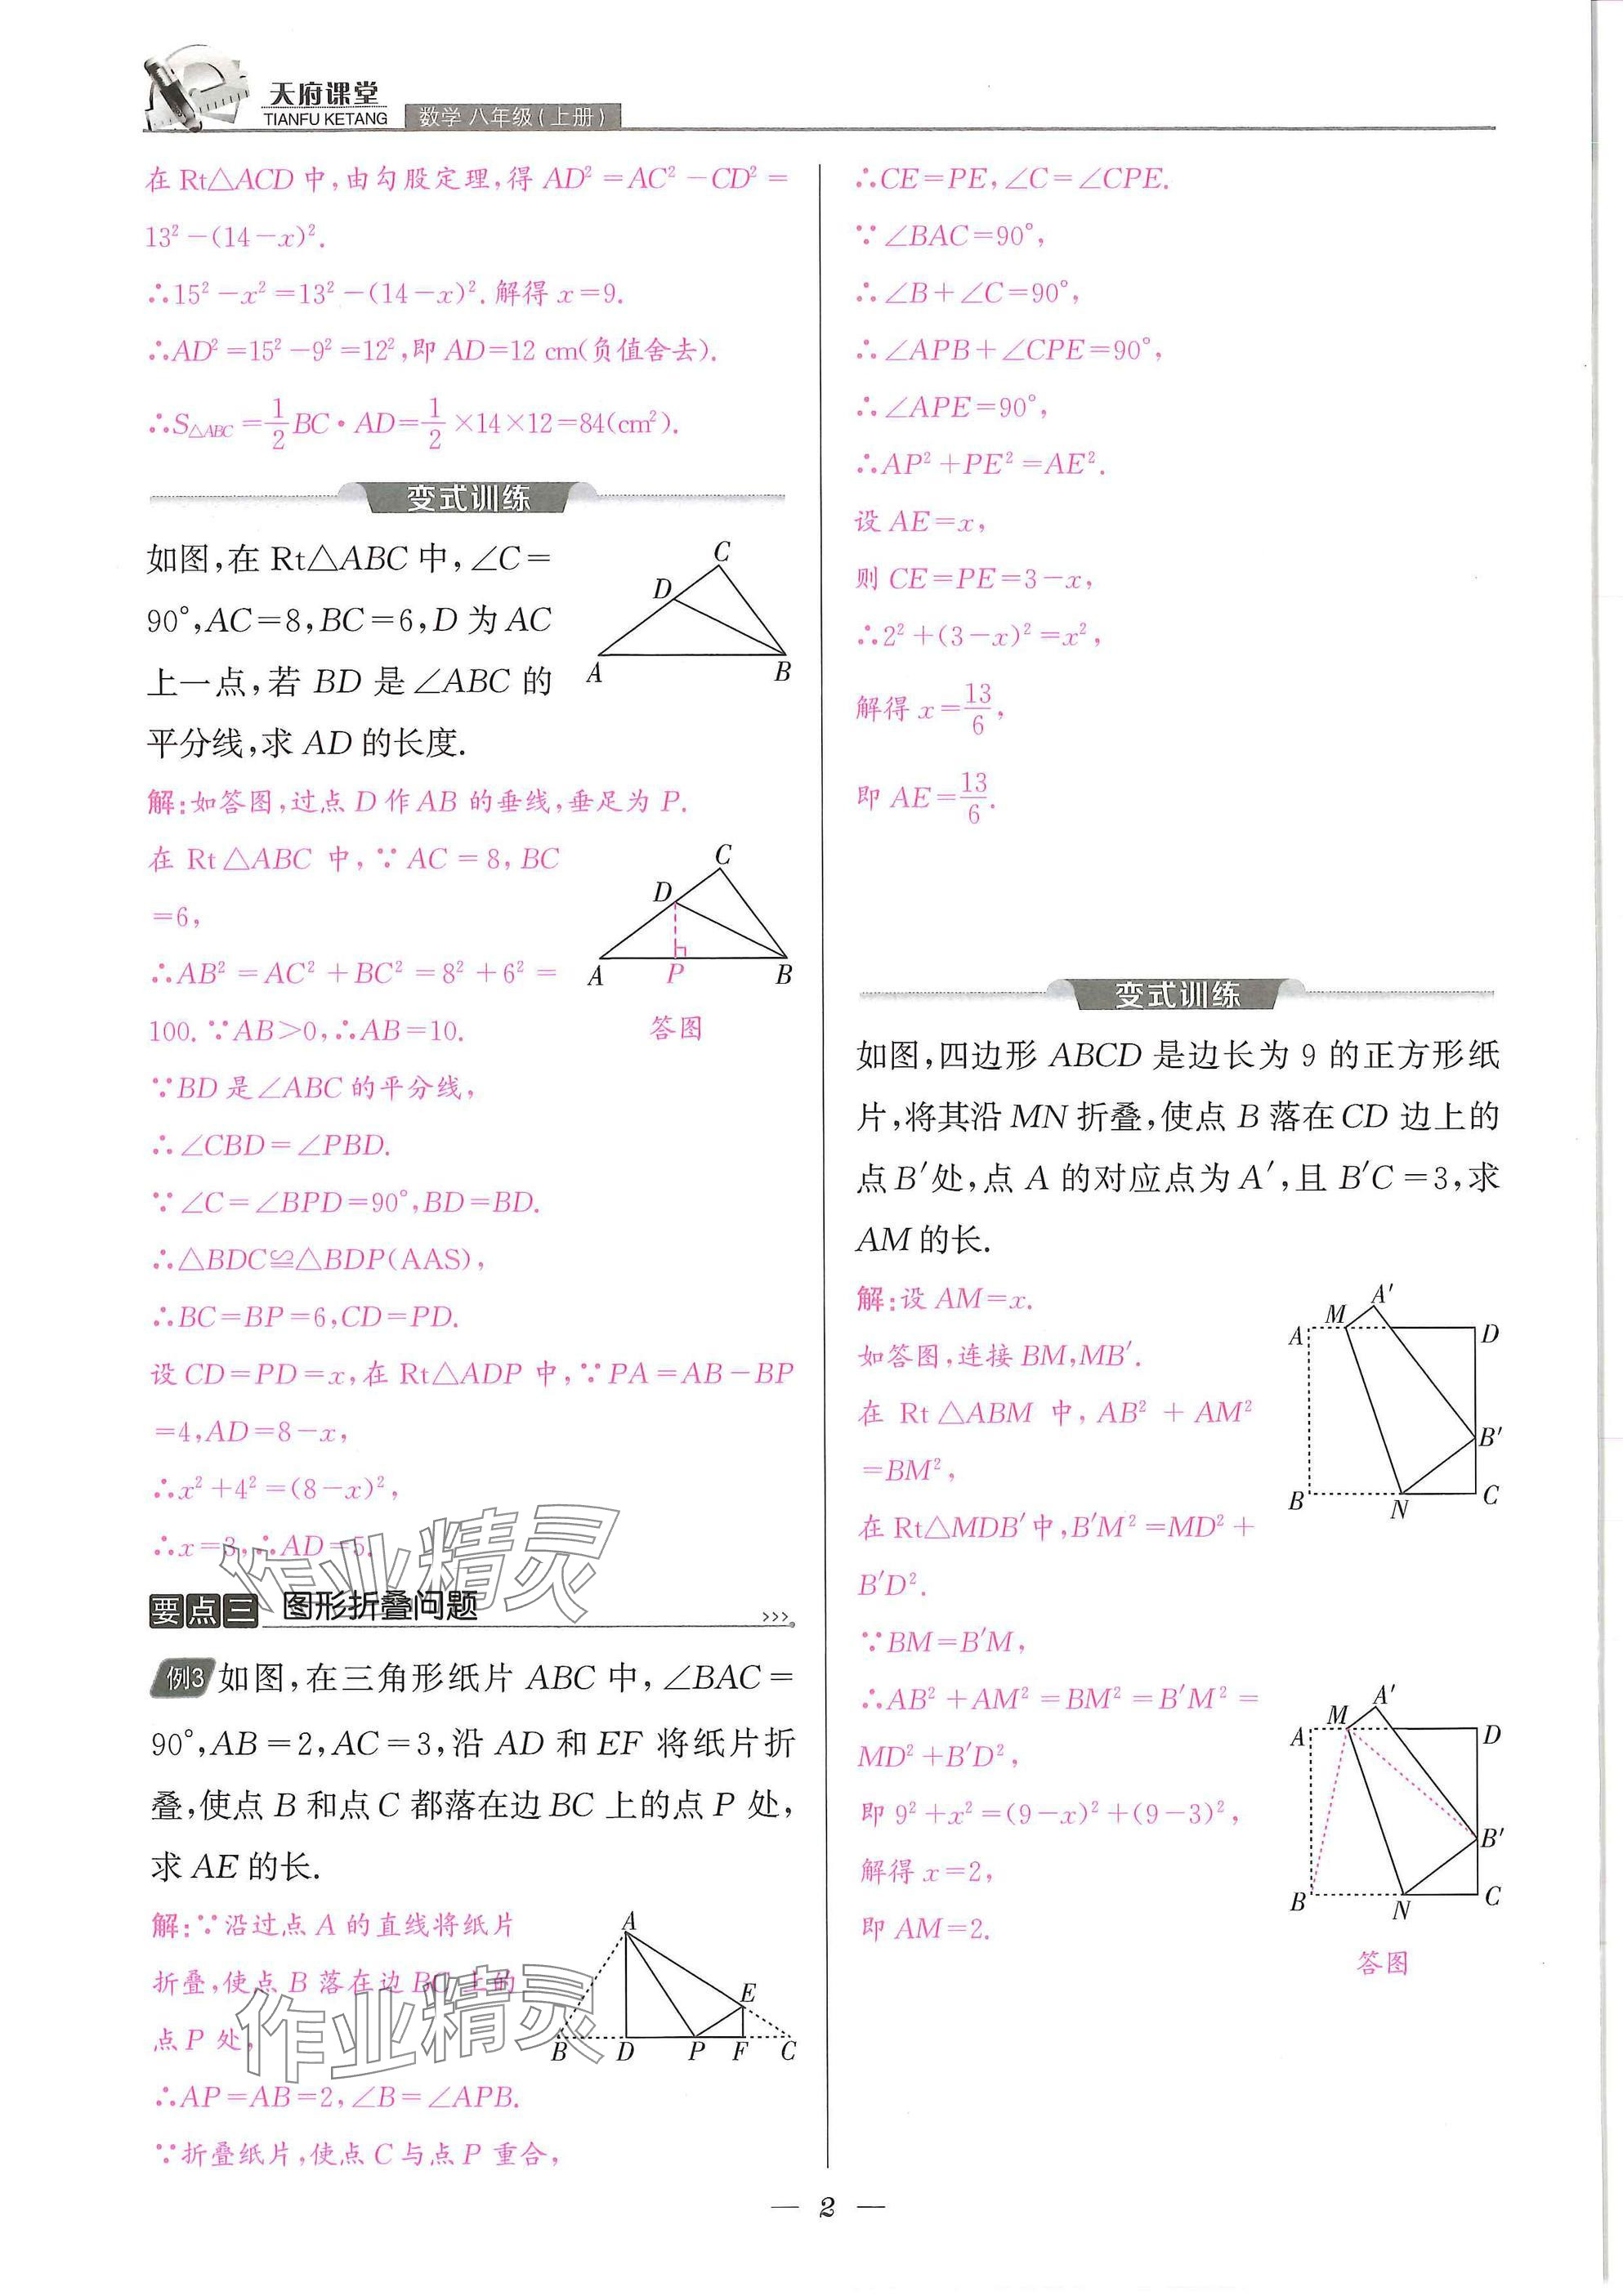 天府课堂
TIANFU KETANG
数学 八年级(上册)
在 Rt△ACD 中,由勾股定理,得 AD²=AC²-CD²=
13²-(14-x)².
∴15²-x²=13²-(14-x)².解得 x=9.
∴AD²=15²-9²=12²,即 AD=12 cm(负值舍去).
∴S△ABC=1/2 BC·AD=1/2×14×12=84(cm²).
变式训练
如图,在 Rt△ABC 中,∠C=
90°,AC=8,BC=6,D 为 AC
上一点,若 BD 是∠ABC 的
平分线,求 AD 的长度.
C
D
A
B
解:如答图,过点 D 作 AB 的垂线,垂足为 P.
在 Rt△ABC 中,∵AC=8,BC
=6,
∴AB²=AC²+BC²=8²+6²=
100.∵AB>0,∴AB=10.
C
D
A
P
B
答图
∵BD 是∠ABC 的平分线,
∴∠CBD=∠PBD.
∵∠C=∠BPD=90°,BD=BD.
∴△BDC≌△BDP(AAS),
∴BC=BP=6,CD=PD.
设 CD=PD=x,在 Rt△ADP 中,∵PA=AB-BP
=4,AD=8-x,
∴x²+4²=(8-x)²,
∴x=3,∴AD=5.
作业精灵
要点三 图形折叠问题 >>>
例3 如图,在三角形纸片 ABC 中,∠BAC=
90°,AB=2,AC=3,沿 AD 和 EF 将纸片折
叠,使点 B 和点 C 都落在边 BC 上的点 P 处,
求 AE 的长.
解:∵沿过点 A 的直线将纸片
折叠,使点 B 落在边 BC 上的
点 P 处,
作业精灵
A
E
B
D
P
F
C
∴AP=AB=2,∠B=∠APB.
∵折叠纸片,使点 C 与点 P 重合,
∴CE=PE,∠C=∠CPE.
∵∠BAC=90°,
∴∠B+∠C=90°,
∴∠APB+∠CPE=90°,
∴∠APE=90°,
∴AP²+PE²=AE².
设 AE=x,
则 CE=PE=3-x,
∴2²+(3-x)²=x²,
解得 x=13/6,
即 AE=13/6.
变式训练
如图,四边形 ABCD 是边长为 9 的正方形纸
片,将其沿 MN 折叠,使点 B 落在 CD 边上的
点 B′处,点 A 的对应点为 A′,且 B′C=3,求
AM 的长.
解:设 AM=x.
如答图,连接 BM,MB′.
在 Rt△ABM 中,AB²+AM²
=BM²,
在 Rt△MDB′中,B′M²=MD²+
B′D².
∵BM=B′M,
∴AB²+AM²=BM²=B′M²=
MD²+B′D²,
即 9²+x²=(9-x)²+(9-3)²,
解得 x=2,
即 AM=2.
A′
M
A
D
B′
B
N
C
A′
M
A
D
B′
B
N
C
答图
— 2 —